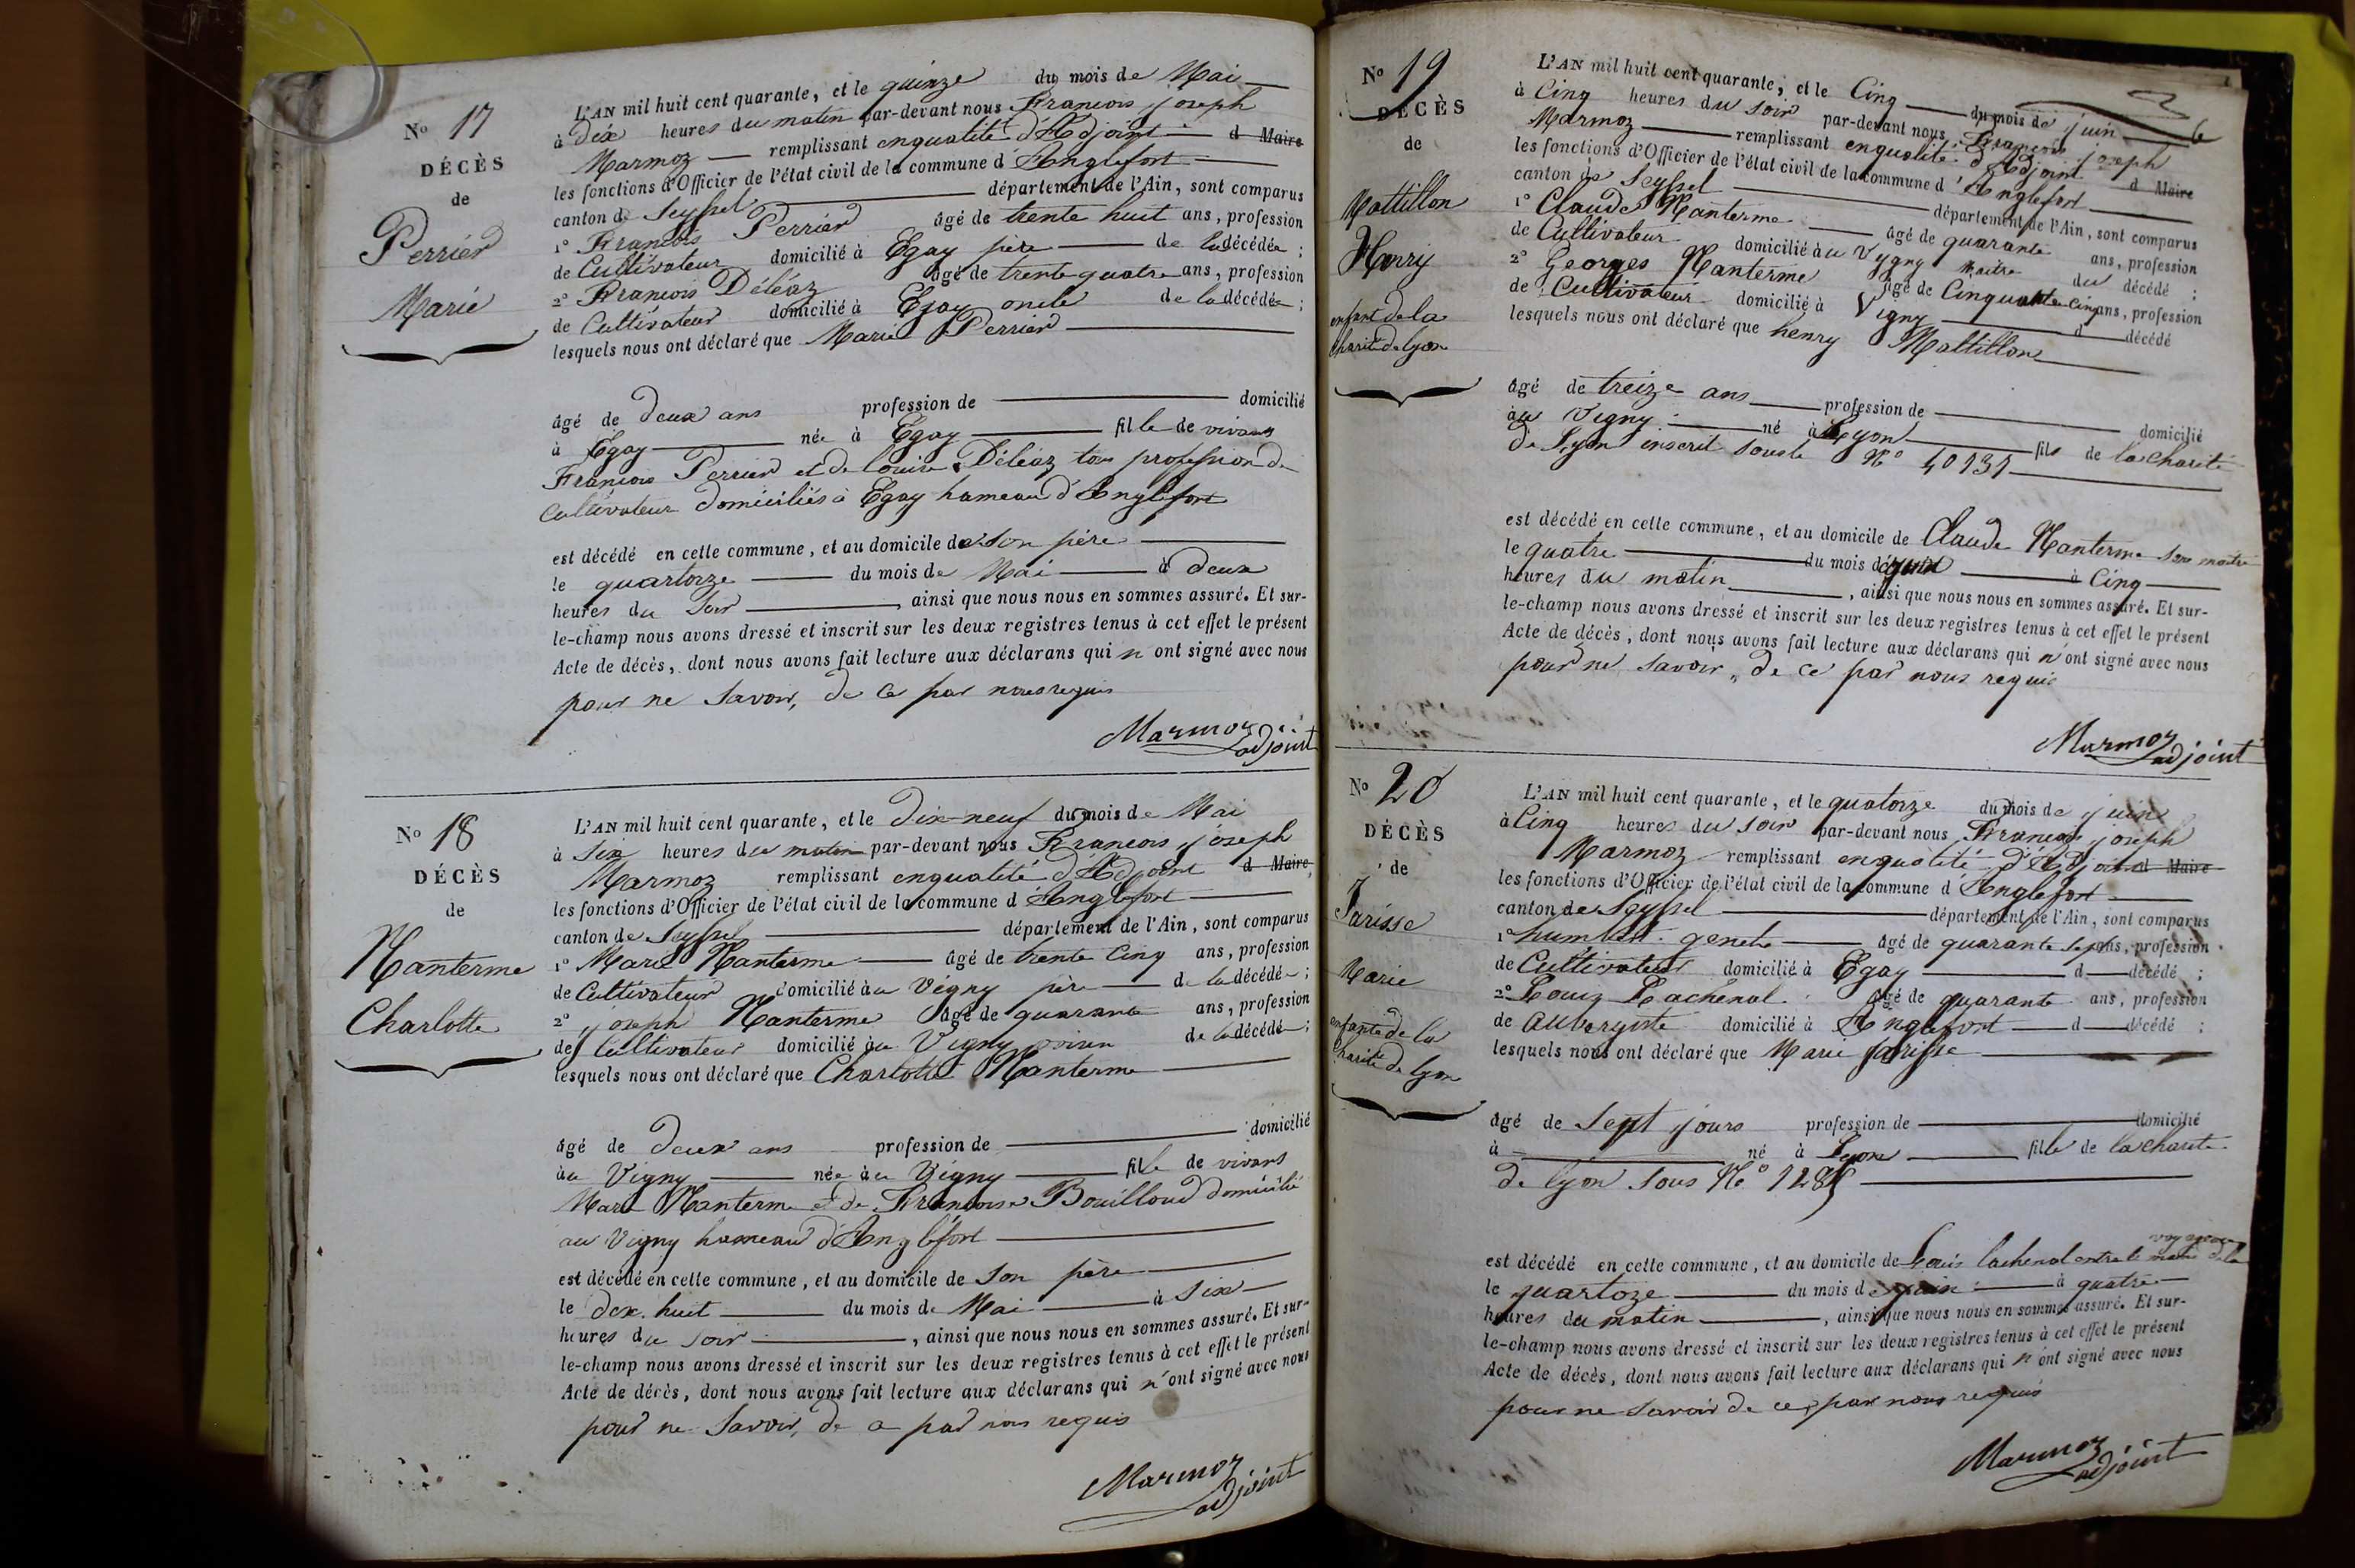 N.o 17
DÉCÈS
de
Perrier
Marie
L'AN mil huit cent quarante, et le quinze du mois de Mai
à dix heures du matin par-devant nous Francois joseph
Marmoz remplissant enqualité d'Adjoint d Maire
les fonctions d'Officier de l'état civil de la commune d'Anglefort
canton de Seyssel département de l'Ain, sont comparus
1° Francois Perrier âgé de trente huit ans, profession
de Cultivateur domicilié à Egay père de la décédée ;
2° Francois Déléaz âgé de trente quatre ans, profession
de Cultivateur domicilié à Egay oncle de la décédée ;
lesquels nous ont déclaré que Marie Perrier
âgé de deux ans profession de domicilié
à Egay née à Egay fille de vivans
Francois Perrier et de Louise Déléaz tous profession de
Cultivateur domiciliés à Egay hameau d'Anglefort
est décédé en cette commune, et au domicile de son père
le quartorze du mois de Mai à deux
heures du soir , ainsi que nous nous en sommes assuré. Et sur-
le-champ nous avons dressé et inscrit sur les deux registres tenus à cet effet le présent
Acte de décès, dont nous avons fait lecture aux déclarans qui n'ont signé avec nous
pour ne savoir, de ce par nous requis
Marmoz
adjoint
N.o 18
DÉCÈS
de
Nanterme
Charlotte
L'AN mil huit cent quarante, et le dix-neuf du mois de Mai
à six heures du matin par-devant nous Francois joseph
Marmoz remplissant enqualité d'Adjoint d Maire
les fonctions d'Officier de l'état civil de la commune d'Anglefort
canton de Seyssel département de l'Ain, sont comparus
1° Marie Nanterme âgé de trente cinq ans, profession
de Cultivateur domicilié au Vigny père de la décédée ;
2° joseph Nanterme âgé de quarante ans, profession
de Cultivateur domicilié au Vigny voisin de la décédée ;
lesquels nous ont déclaré que Charlotte Nanterme
âgé de deux ans profession de domicilié
au Vigny née au Vigny fille de vivans
Marie Nanterme et de Francoise Bouilloud domicilié
au Vigny hameau d'Anglefort
est décédé en cette commune, et au domicile de son père
le dix huit du mois de Mai à six
heures du soir , ainsi que nous nous en sommes assuré. Et sur-
le-champ nous avons dressé et inscrit sur les deux registres tenus à cet effet le présent
Acte de décès, dont nous avons fait lecture aux déclarans qui n'ont signé avec nous
pour ne savoir, de ce par nous requis
Marmoz
adjoint
N.o 19
DÉCÈS
de
Mattillon
Henry
enfant de la
charité de lyon
L'AN mil huit cent quarante, et le Cinq du mois de juin
à Cinq heures du soir par-devant nous Francois joseph
Marmoz remplissant enqualité d'Adjoint d Maire
les fonctions d'Officier de l'état civil de la commune d'Anglefort
canton de Seyssel département de l'Ain, sont comparus
1° Claude Nanterme âgé de quarante ans, profession
de Cultivateur domicilié au Vygny Maitre du décédé ;
2° Georges Nanterme âgé de Cinquante cinq ans, profession
de Cultivateur domicilié à Vigny d décédé
lesquels nous ont déclaré que henry Mattillon
âgé de treize ans profession de domicilié
au Vigny né à Lyon fils de la charité
de Lyon inscrit sous le N° 40131
est décédé en cette commune, et au domicile de Claude Nanterme son maitre
le quatre du mois de juin à Cinq
heures du matin , ainsi que nous nous en sommes assuré. Et sur-
le-champ nous avons dressé et inscrit sur les deux registres tenus à cet effet le présent
Acte de décès, dont nous avons fait lecture aux déclarans qui n'ont signé avec nous
pour ne savoir, de ce par nous requis
Marmoz
adjoint
N.o 20
DÉCÈS
de
Jarisse
Marie
enfante de la
charité de lyon
L'AN mil huit cent quarante, et le quatorze du mois de juin
à Cinq heures du soir par-devant nous Francois joseph
Marmoz remplissant enqualité d'Adjoint d Maire
les fonctions d'Officier de l'état civil de la commune d'Anglefort
canton de Seyssel département de l'Ain, sont comparus
1° humbert âgé de quarante sept ans, profession
de Cultivateur domicilié à Egay d décédé ;
2° Louis Lachenal âgé de quarante ans, profession
de Aubergiste domicilié à Anglefort d décédé ;
lesquels nous ont déclaré que Marie jarisse
âgé de sept jours profession de domicilié
à né à Lyon fille de la charité
de lyon sous N°
est décédé en cette commune, et au domicile de Louis lachenal entre le mains de la
voyageur
le quartoze du mois de juin à quatre
heures du matin , ainsi que nous nous en sommes assuré. Et sur-
le-champ nous avons dressé et inscrit sur les deux registres tenus à cet effet le présent
Acte de décès, dont nous avons fait lecture aux déclarans qui n'ont signé avec nous
pour ne savoir de ce par nous requis
Marmoz
adjoint